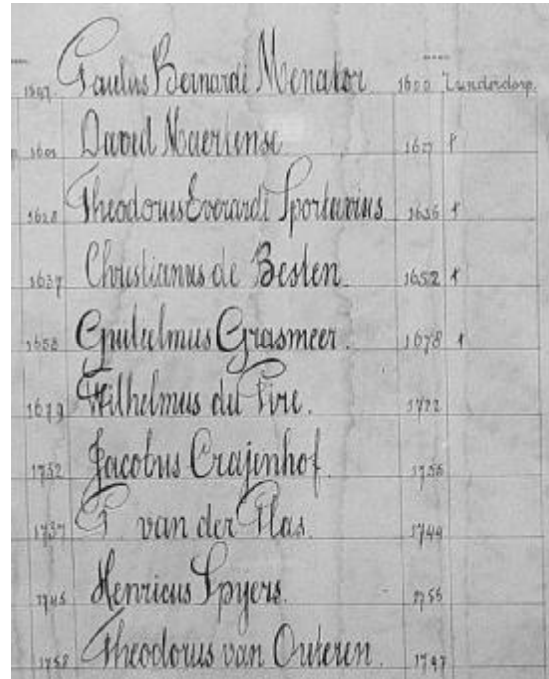 1597 Paulus Bernardi Venator 1600 Zunderdorp.
1601 David Maertense 1627 †
1628 Theodorus Everardi Sportavius 1636 †
1637 Christianus de Besten. 1652 †
1658 Gulielmus Grasmeer. 1678 †
1679 Wilhelmus du Pire.
Jacobus Crajenhof. 1736
1737 G. van der Plas. 1744
1745 Henricus Spyers. 1755
Theodorus van Outeren.